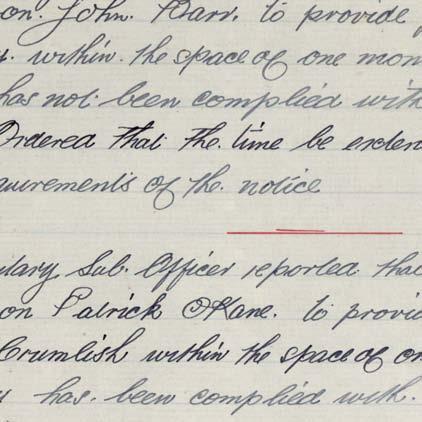 on. John. Barr. to provide
y. within. the space of one mon
has not been complied with
Ordered that the time be exten
quirements of the notice
itary Sub. Officer reported that
on Patrick OKane. to provid
Crumlish within the space of on
y has. been complied with.